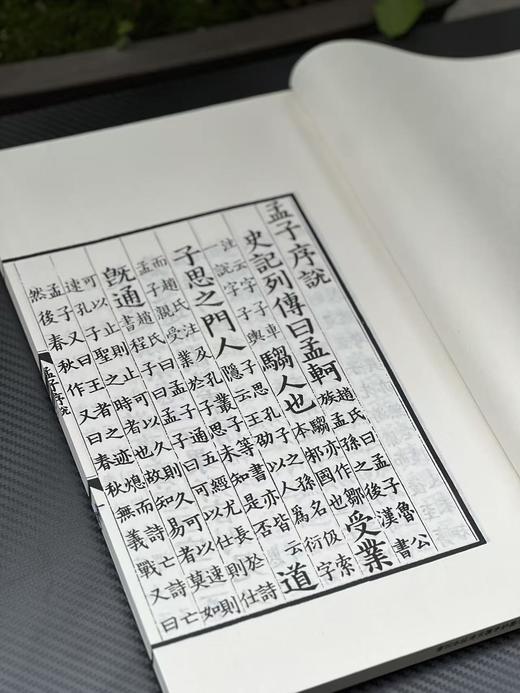 孟子序說
史記列傳曰孟軻
趙氏曰孟子魯公
族孟孫之後漢書
注云字子車
一說字子輿
騶人也
騶亦作鄒
本邾國也
受業
子思之門人
子思孔子之孫名伋索
隱云王劭以人爲衍字
而趙氏注及孔叢子等書亦皆云
孟子親受業於子思未知是否
道
既通
趙氏曰孟子通五經尤長於詩
書程子曰孟子曰可以仕則仕
可以止則止可以久則久可以速則
速孔子聖之時者也故知易者莫如
孟子又曰王者之迹熄而詩亡詩亡
然後春秋作又曰春秋無義戰又曰
孟子序說